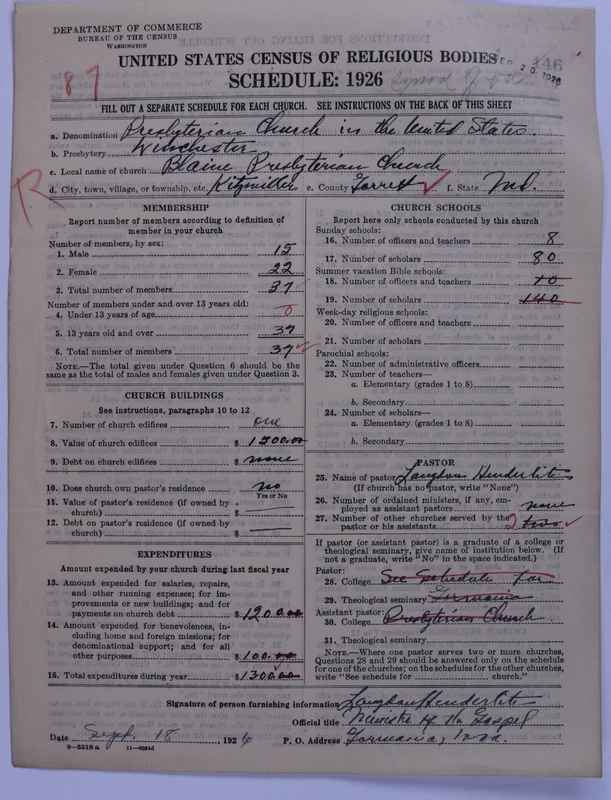 DEPARTMENT OF COMMERCE
BUREAU OF THE CENSUS
WASHINGTON
UNITED STATES CENSUS OF RELIGIOUS BODIES
SEP 20 1926
SCHEDULE: 1926
87
FILL OUT A SEPARATE SCHEDULE FOR EACH CHURCH. SEE INSTRUCTIONS ON THE BACK OF THIS SHEET
a. Denomination Presbyterian Church in the United States.
b. Presbytery Winchester
c. Local name of church Blaine Presbyterian Church
d. City, town, village, or township, etc. Kitzmiller e. County Garrett f. State Md.
R
MEMBERSHIP
Report number of members according to definition of
member in your church
Number of members, by sex:
1. Male 15
2. Female 22
3. Total number of members 37
Number of members under and over 13 years old:
4. Under 13 years of age 0
5. 13 years old and over 37
6. Total number of members 37
NOTE.—The total given under Question 6 should be
same as the total of males and females given under Question 3.
CHURCH BUILDINGS
See instructions, paragraphs 10 to 12
7. Number of church edifices one
8. Value of church edifices $ 1500.00
9. Debt on church edifices $ none
10. Does church own pastor's residence no
Yes or No
11. Value of pastor's residence (if owned by
church) $
12. Debt on pastor's residence (if owned by
church) $
EXPENDITURES
Amount expended by your church during last fiscal year
13. Amount expended for salaries, repairs,
and other running expenses; for im-
provements or new buildings; and for
payments on church debt $ 1200.00
14. Amount expended for benevolences, in-
cluding home and foreign missions; for
denominational support; and for all
other purposes $ 100.00
15. Total expenditures during year $ 1300.00
CHURCH SCHOOLS
Report here only schools conducted by this church
Sunday schools:
16. Number of officers and teachers 8
17. Number of scholars 80
Summer vacation Bible schools:
18. Number of officers and teachers 10
19. Number of scholars 140
Week-day religious schools:
20. Number of officers and teachers
21. Number of scholars
Parochial schools:
22. Number of administrative officers
23. Number of teachers—
a. Elementary (grades 1 to 8)
b. Secondary
24. Number of scholars—
a. Elementary (grades 1 to 8)
b. Secondary
PASTOR
25. Name of pastor Langdon Henderlite
(If church has no pastor, write "None")
26. Number of ordained ministers, if any, em-
ployed as assistant pastors none
27. Number of other churches served by the
pastor or his assistants 2 two
If pastor (or assistant pastor) is a graduate of a college or
theological seminary, give name of institution below. (If
not a graduate, write "No" in the space indicated.)
Pastor:
28. College See schedule for
29. Theological seminary Gormania
Assistant pastor:
30. College Presbyterian Church
31. Theological seminary
NOTE.—Where one pastor serves two or more churches,
Questions 28 and 29 should be answered only on the schedule
for one of the churches; on the schedules for the other churches,
write "See schedule for church."
Signature of person furnishing information Langdon Henderlite
Official title Minister of the Gospel
Date Sept. 18, 1926 P. O. Address Gormania, W.Va.
8—5518a 11—80544